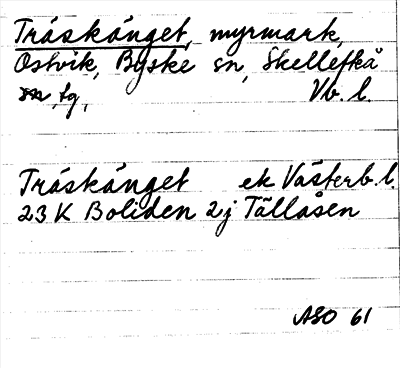 Träskänget, myrmark,
Ostvik, Byske sn, Skellefteå
tg, Vb. l.
Träskänget ek Västerb. l.
23 K Boliden 2j Tällåsen
ASO 61